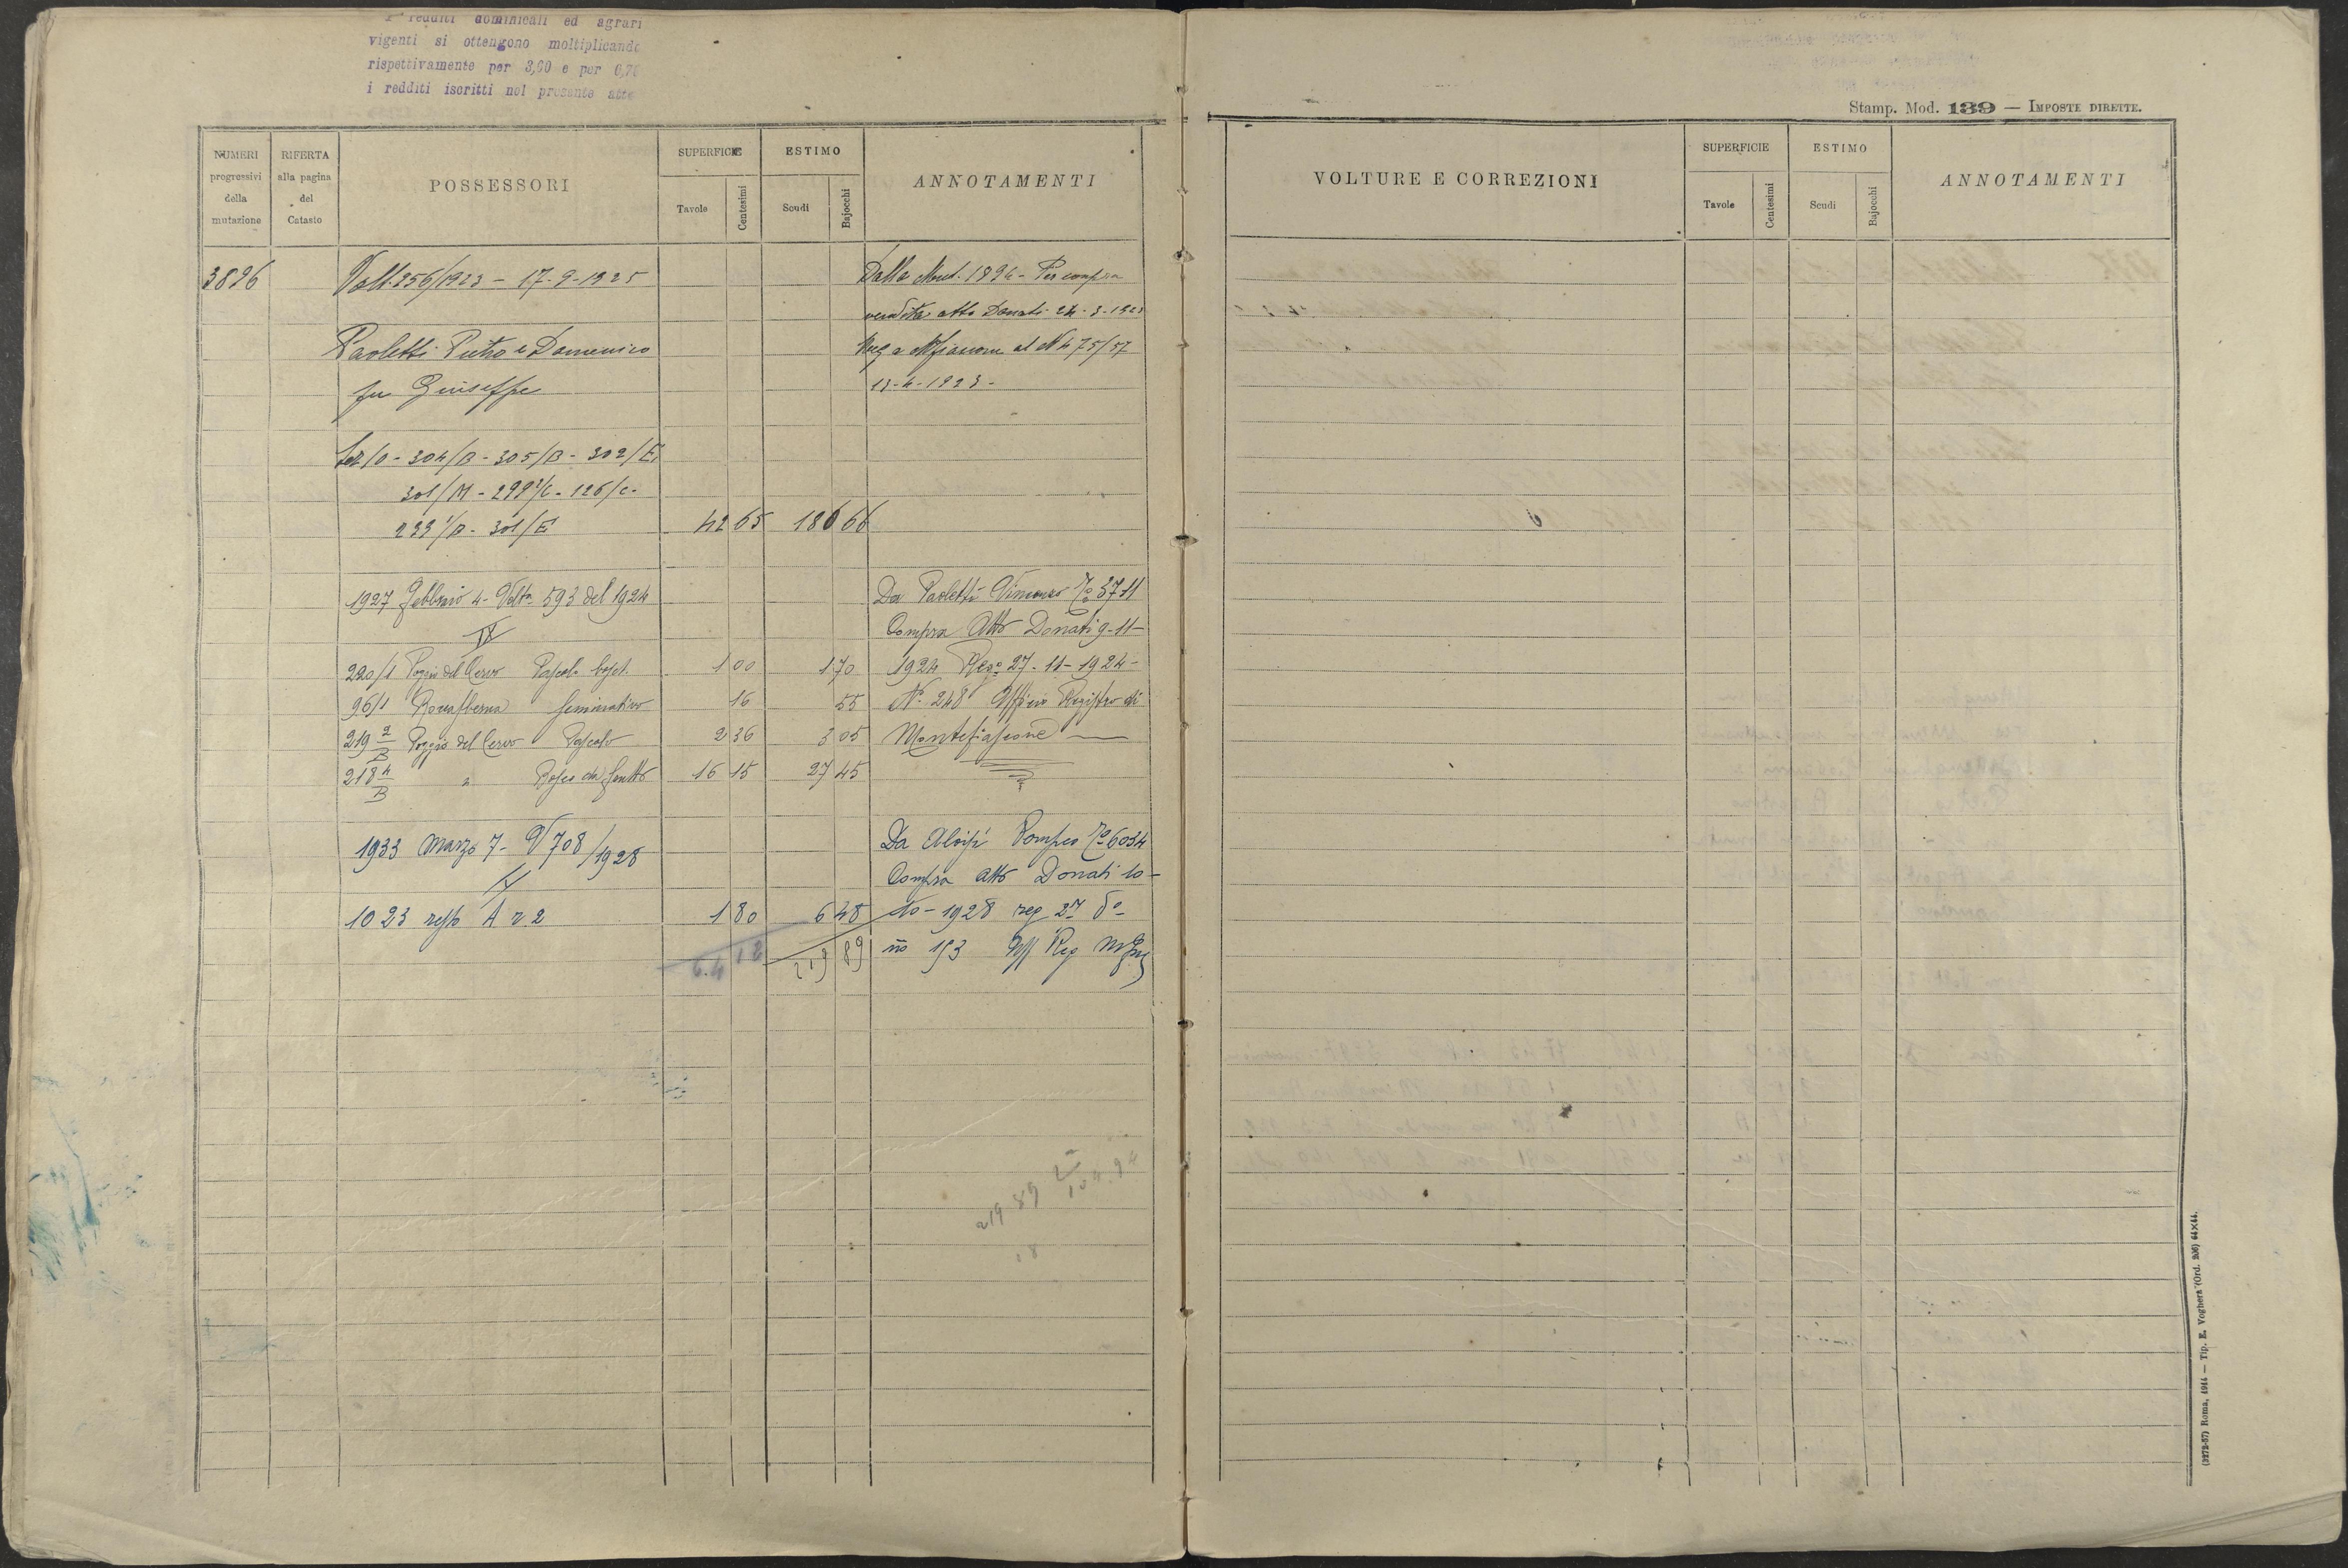 I redditi dominicali ed agrari
vigenti si ottengono moltiplicando
rispettivamente per 3,60 e per 6,70
i redditi iscritti nel presente atto
Stamp. Mod. 139 — IMPOSTE DIRETTE.
NUMERI progressivi della mutazione
RIFERTA alla pagina del Catasto
POSSESSORI
SUPERFICIE
Tavole
Centesimi
ESTIMO
Scudi
Bajocchi
ANNOTAMENTI
VOLTURE E CORREZIONI
SUPERFICIE
Tavole
Centesimi
ESTIMO
Scudi
Bajocchi
ANNOTAMENTI
3826 Volt. 256/1923 - 17-9-1925 Dalla Mut. 1894 - Per compra
vendita atto Donati 24-3-1923
Paoletti Pietro e Domenico Reg a Mfiascone al N 475/57
fu Giuseppe 13-4-1923-
Sez /0 - 304/B - 305/B - 302/E
301/M - 299²/C - 126/c-
299¹/B - 301/E 42 65 186 66
1927 Febbraio 4 - Volta 593 del 1924 Da Paoletti Vincenzo 3711
IV Compra Atto Donati 9-11-
220/1 Poggio del Cervo Pascolo bosc. 1 00 1 70 1924 Rego 27-11-1924-
96/1 Seminativo 16 55 N. 248 Ufficio Registro di
219 2/B Poggio del Cervo Pascolo 2 36 3 05 Montefiascone
218 4/B " Bosco da frutto 16 15 27 45
1933 Marzo 7 - V 708/1928 Da Aloisi Pompeo 6034
IV Compra atto Donati 10-
1023 resto A r. 2 1 80 6 48 10-1928 reg 27 do
64 12 219 89 no 193 Uff Reg
219 89
104.94
18
(3272-57) Roma, 1914 — Tip. E. Voghera (Ord. 206) 64×44.